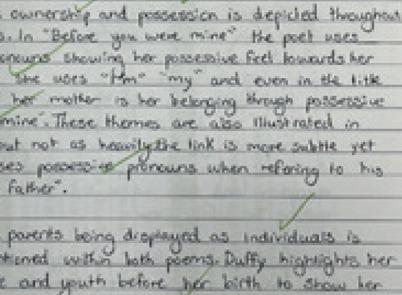 ownership and possession is depicted throughout
s. In "Before you were mine" the poet uses
onouns showing her possessive feel towards her
She uses "I'm" "my" and even in the title
her mother is her belonging through possessive
mine". These themes are also illustrated in
but not as heavily the link is more subtle yet
ses possessive pronouns when refering to his
father".
parents being displayed as individuals is
tioned within both poems. Duffy highlights her
e and youth before her birth to show her